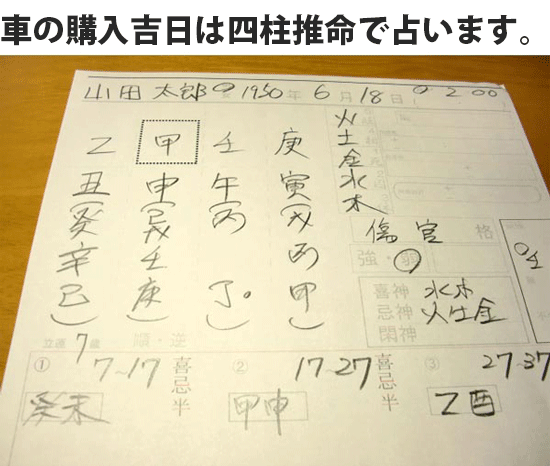 車の購入吉日は四柱推命で占います。
山田 太郎 1950年 6月 18日 2:00
乙 甲 壬 庚
丑 申 午 寅
(癸 辛 己) (戊 壬 庚) (丙 丁) (戊 丙 甲)
火
土
金
水
木
傷官 格
強・弱
喜神 水木
忌神 火土金
閑神
立運 7歳 順・逆
① 7~17 喜忌半 ② 17~27 喜忌半 ③ 27~37
癸未 甲申 乙酉